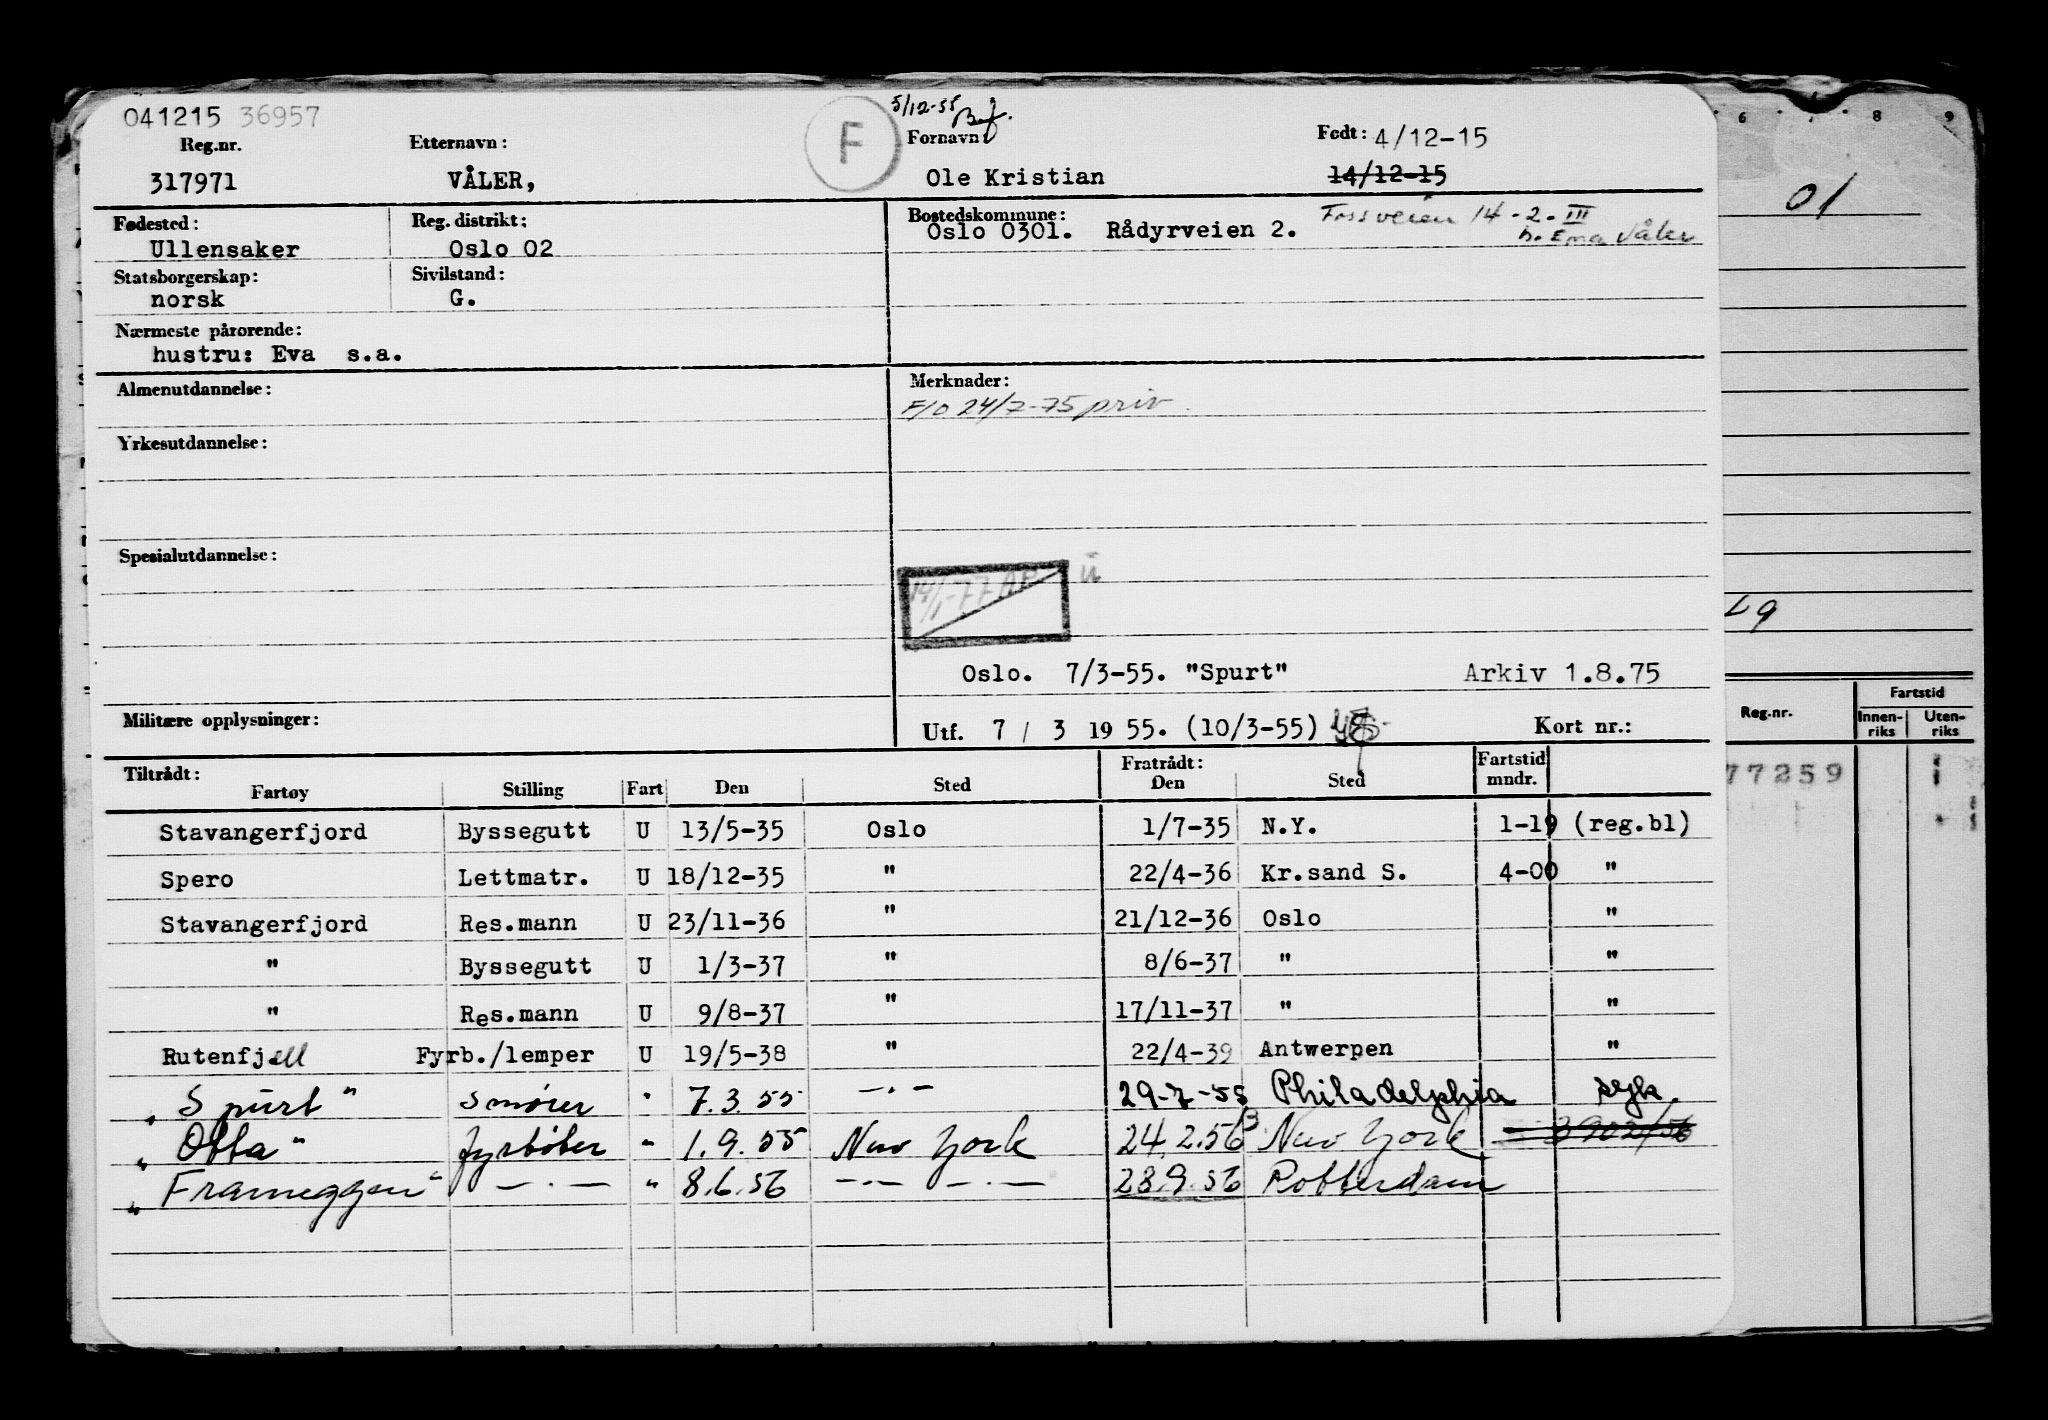 041215 36957
5/12-55
F
Reg.nr.   Etternavn:   Fornavn   Født: 4/12-15
317971   VÅLER,   Ole Kristian   14/12-15
Fødested:   Reg. distrikt:   Bostedskommune:   Fossveien 14-2-III
Ullensaker   Oslo 02   Oslo 0301.   Rådyrveien 2.   Våler
Statsborgerskap:   Sivilstand:
norsk   G.
Nærmeste pårørende:
hustru: Eva   s.a.
Almenutdannelse:   Merknader:
F/O 24/7-75 priv.
Yrkesutdannelse:
Spesialutdannelse:
14/1-77 AP
Oslo.   7/3-55. "Spurt"   Arkiv 1.8.75
Militære opplysninger:   Utf. 7 / 3 19 55. (10/3-55)   Kort nr.:
Tiltrådt:   Fratrådt:   Fartstid
Fartøy   Stilling   Fart   Den   Sted   Den   Sted   mndr.
Stavangerfjord   Byssegutt   U   13/5-35   Oslo   1/7-35   N.Y.   1-19   (reg.bl)
Spero   Lettmatr.   U   18/12-35   "   22/4-36   Kr.sand S.   4-00   "
Stavangerfjord   Res.mann   U   23/11-36   "   21/12-36   Oslo   "
"   Byssegutt   U   1/3-37   "   8/6-37   "   "
"   Res.mann   U   9/8-37   "   17/11-37   "   "
Rutenfjell   Fyrb./lemper   U   19/5-38   "   22/4-39   Antwerpen   "
„ Spurt "   Smører   "   7.3.55   —·—   29-7-55   Philadelphia   syk.
„ Otta "   fyrbøter   "   1.9.55   New York   24.2.56   New York
„ Frameggen "   —·—   "   8.6.56   —·— —·—   28.9.56   Rotterdam
6   7   8   9
01
29
Reg.nr.   Fartstid
Innen-riks   Uten-riks
77259